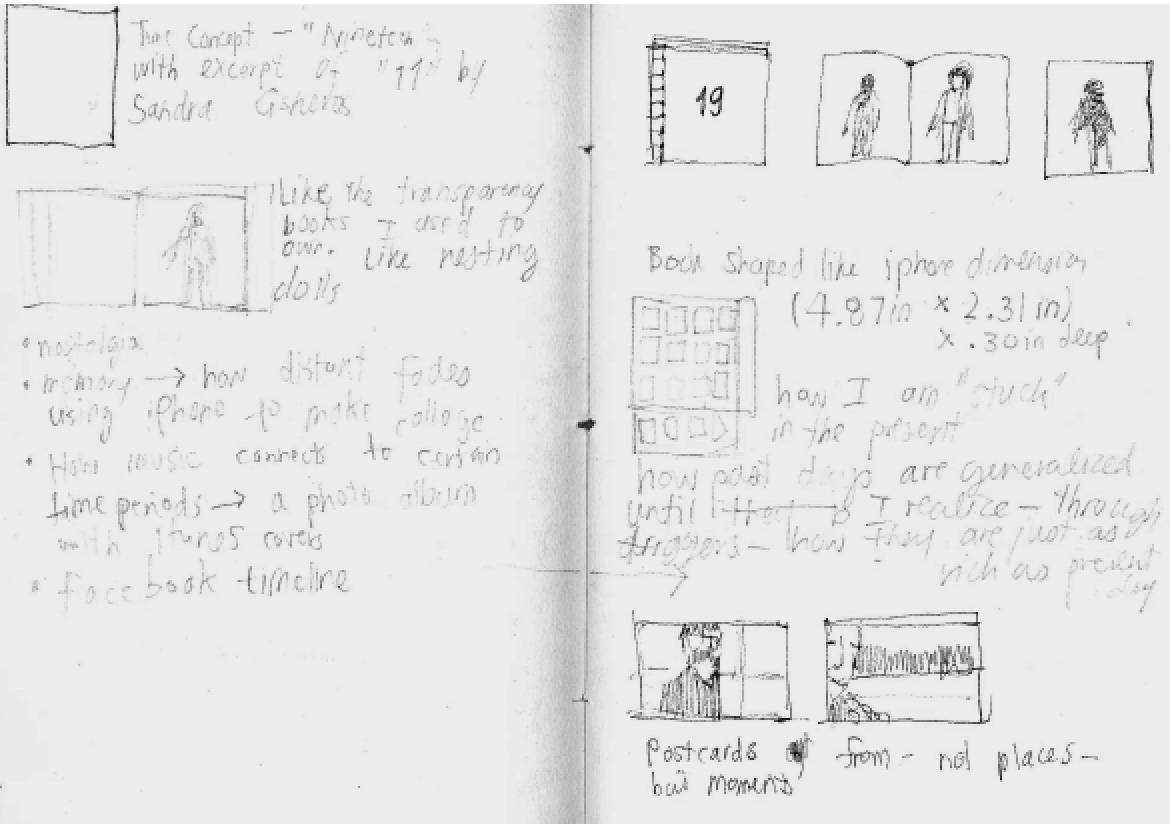 Time Concept — "Nineteen"
with excerpt of "11" by
Sandra Cisneros
Like the transparency
books I used to
own. Like nesting
dolls
• nostalgia
• memory → how distant fades
using iphone to make collage
• How music connects to certain
time periods → a photo album
with iTunes covers
• Facebook timeline
19
Book shaped like iphone dimension
(4.87in × 2.31in)
× .30in deep
how I am "stuck"
in the present
how past days are generalized
until I realize — through
triggers — how they are just as
rich as present
day
Postcards from — not places —
but moments